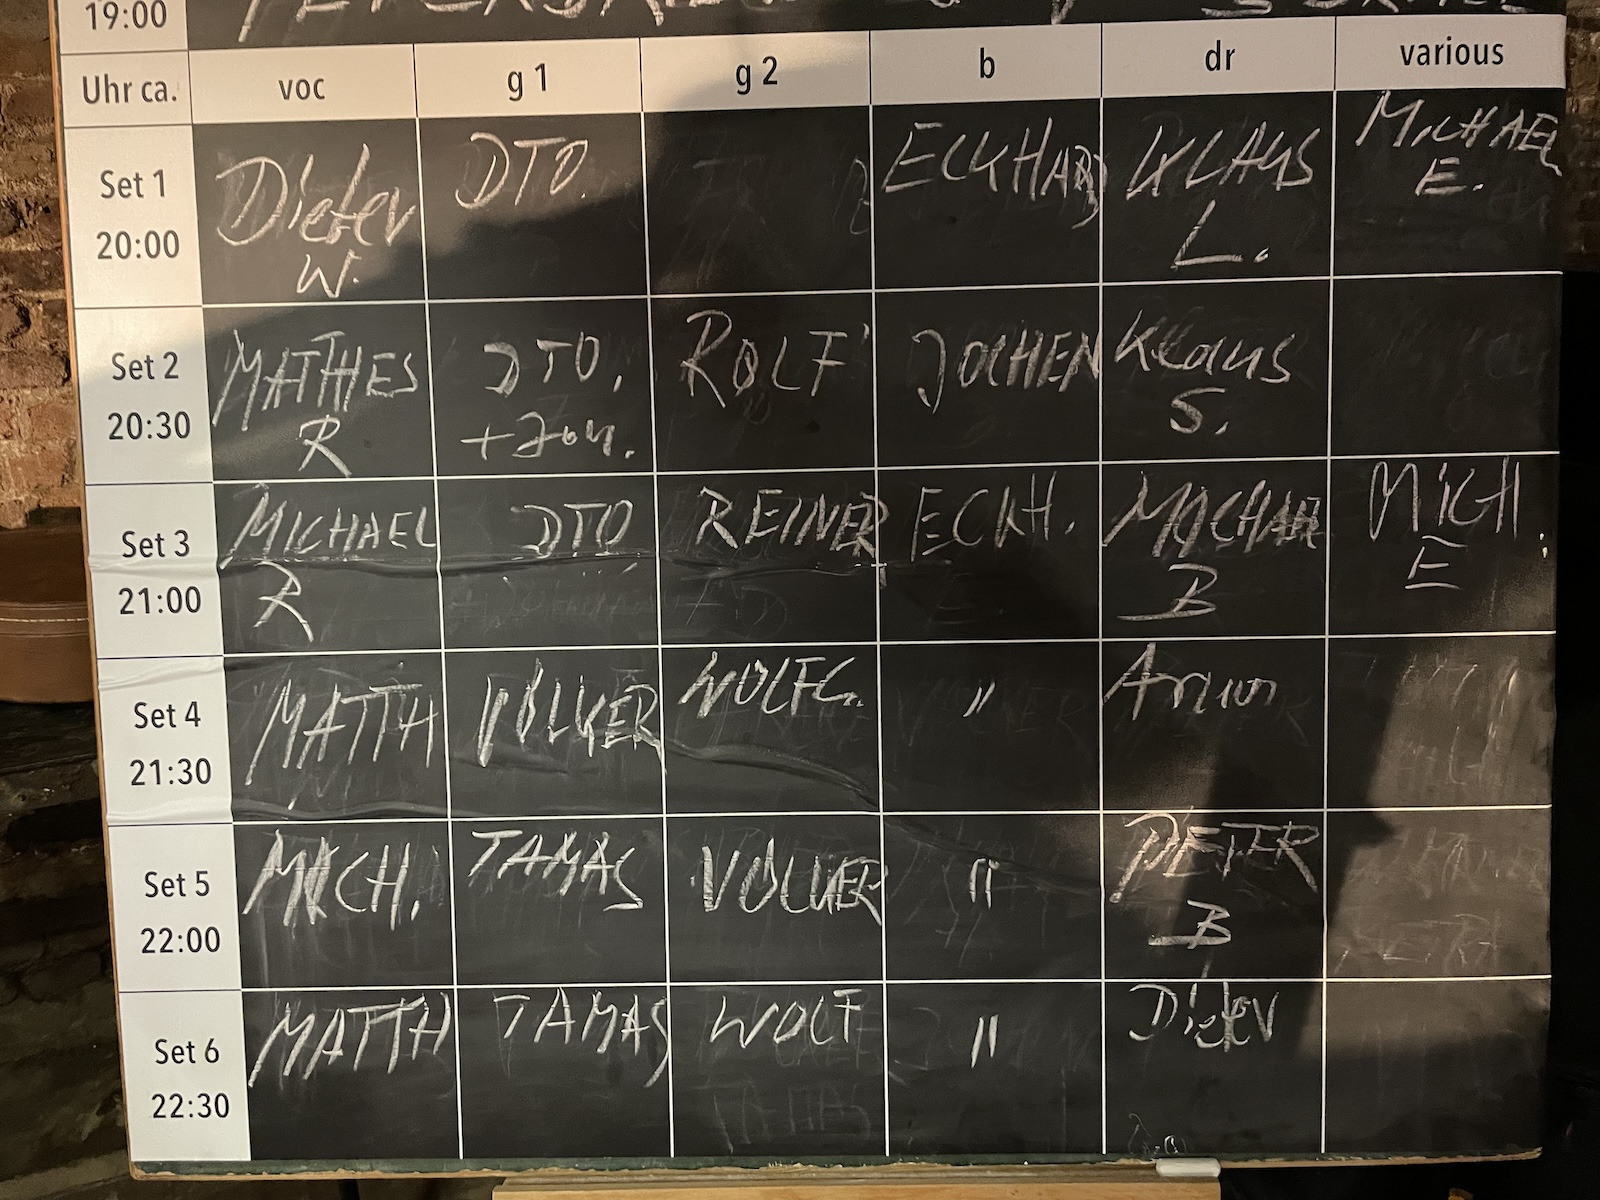 19:00
Uhr ca. voc g 1 g 2 b dr various
Set 1
20:00
Dieter
W.
DTO.
ECKHARD
KLAUS
L.
MICHAEL
E.
Set 2
20:30
MATTHES
R
DTO.
ROLF
JOCHEN
Klaus
S.
Set 3
21:00
MICHAEL
R
DTO
REINER
ECKH.
MICHAEL
B
MICH.
E
Set 4
21:30
MATTH
VOLKER
WOLFG.
"
Set 5
22:00
MICH.
TAMAS
VOLKER
"
PETER
B
Set 6
22:30
MATTH
TAMAS
WOLF
"
Dieter